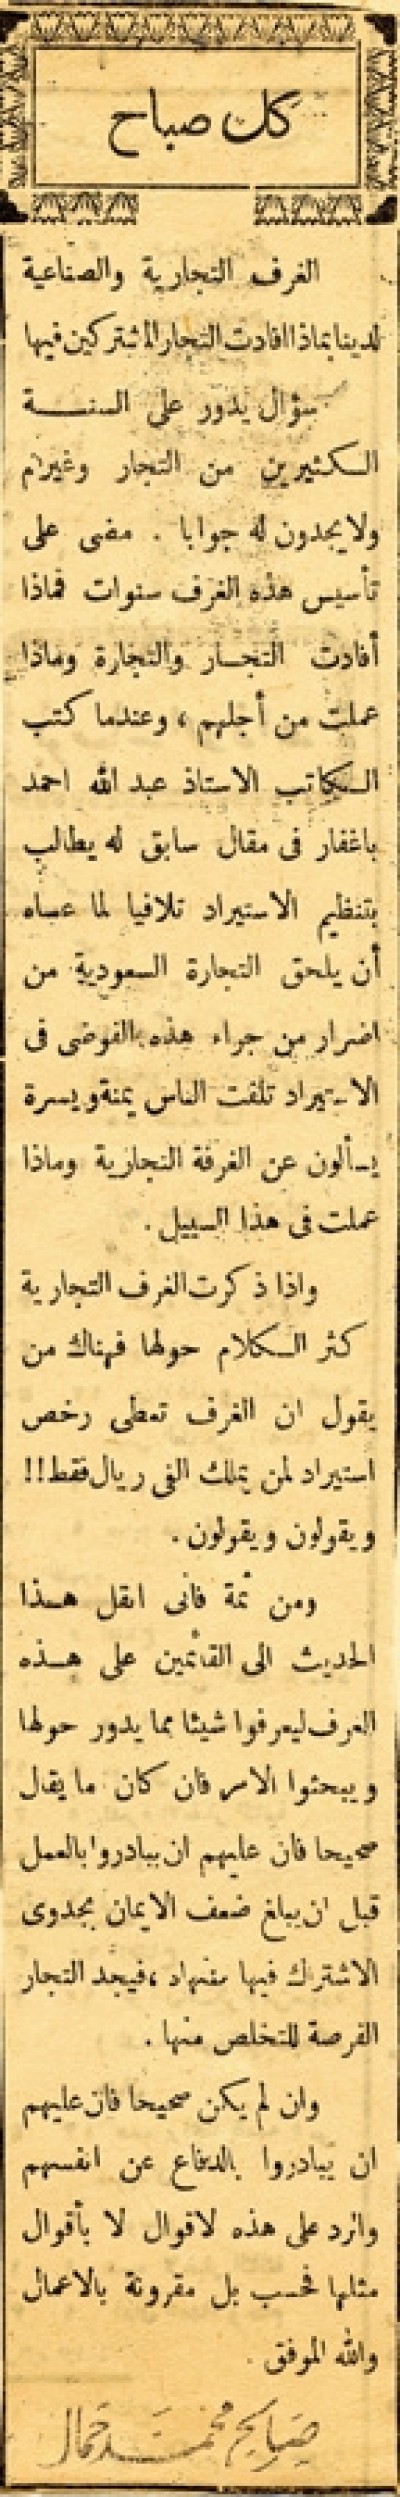 كل صباح
الغرف التجارية والصناعية
لدينا بماذا افادت التجار المشتركين فيها
سؤال يدور على السنة
الكثيرين من التجار وغيرهم
ولا يجدون له جوابا . مضى على
تأسيس هذه الغرف سنوات فماذا
أفادت التجار والتجارة وماذا
عملت من أجلهم ، وعندما كتب
الكاتب الاستاذ عبد الله احمد
باغفار في مقال سابق له يطالب
بتنظيم الاستيراد تلافيا لما عساه
أن يلحق التجارة السعودية من
اضرار من جراء هذه الفوضى في
الاستيراد تلفت الناس يمنة ويسرة
يسألون عن الغرفة التجارية وماذا
عملت في هذا السبيل .
واذا ذكرت الغرف التجارية
كثر الكلام حولها فهناك من
يقول ان الغرف تعطى رخص
استيراد لمن يملك الفى ريال فقط!!
ويقولون ويقولون .
ومن ثمة فانى انقل هذا
الحديث الى القائمين على هذه
الغرف ليعرفوا شيئا مما يدور حولها
ويبحثوا الامر فان كان ما يقال
صحيحا فان عليهم ان يبادروا بالعمل
قبل ان يبلغ ضعف الايمان بجدوى
الاشتراك فيها منتهاه ، فيجد التجار
الفرصة للتخلص منها .
وان لم يكن صحيحا فان عليهم
ان يبادروا بالدفاع عن انفسهم
والرد على هذه لاقوال لا بأقوال
مثلها فحسب بل مقرونة بالاعمال
والله الموفق .
صالح محمد جمال